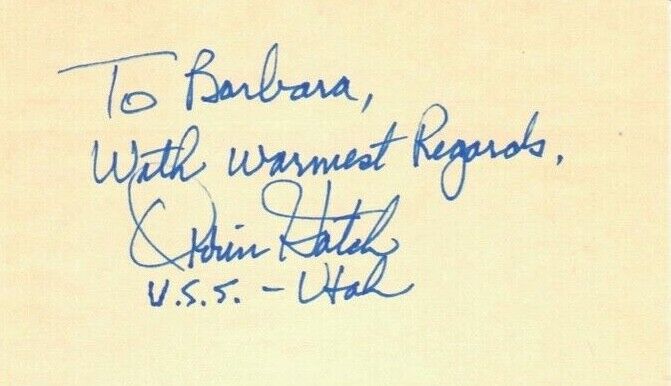 To Barbara,
With Warmest Regards,
Orrin Hatch
U.S.S. - Utah